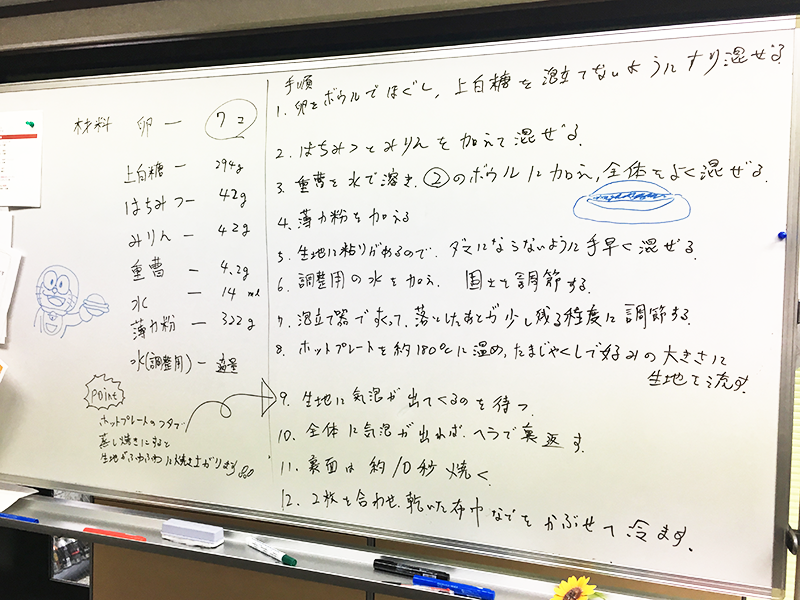 材料 卵 ー 7コ
上白糖 ー 294g
はちみつー 42g
みりん ー 42g
重曹 ー 4.2g
水 ー 14 ml
薄力粉 ー 322g
水(調整用) ー 適量
point
ホットプレートのフタで
蒸し焼きにすると
生地がふわふわに焼き上がります
手順
1. 卵をボウルでほぐし, 上白糖を泡立てないようにすり混ぜる
2. はちみつとみりんを加えて混ぜる.
3. 重曹を水で溶き, ②のボウルに加え, 全体をよく混ぜる.
4. 薄力粉を加える
5. 生地に粘りがあるので, ダマにならないように手早く混ぜる.
6. 調整用の水を加え, 固さを調節する.
7. 泡立て器ですくって, 落としたあとが少し残る程度に調節する.
8. ホットプレートを約180℃に温め, たまじゃくしで好みの大きさに
生地を流す.
9. 生地に気泡が出てくるのを待つ.
10. 全体に気泡が出れば, ヘラで裏返す.
11. 裏面は約10秒焼く.
12. 2枚を合わせ, 乾いた布巾などをかぶせて冷ます.